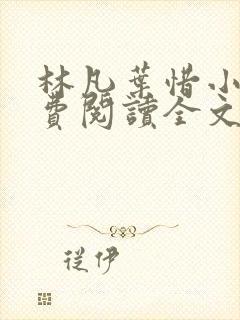 林凡葉惜小
費閱讀全文
從伊